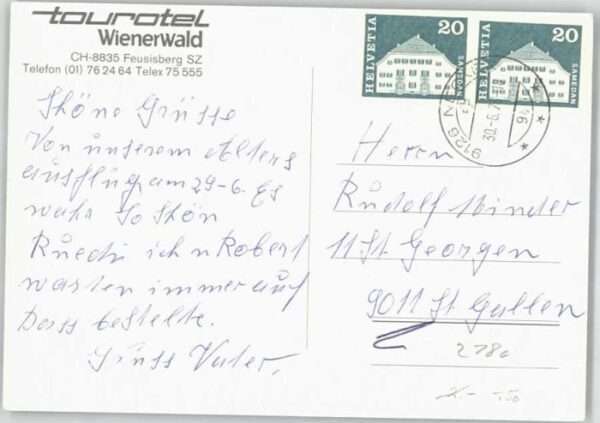 tourotel
Wienerwald
CH-8835 Feusisberg SZ
Telefon (01) 76 24 64 Telex 75 555
Shöne Grüsse
Von unserem Alters
ausflug am 29-6. Es
wahr So Shön
Ruedi ich u Robert
warten immer auf
Dass bestelte.
Grüss Vater.
HELVETIA
20
SAMEDAN
HELVETIA
20
SAMEDAN
9126
30.-6.
Herrn
Rudolf Minder
11 St Georgen
9011 St Gallen
2780